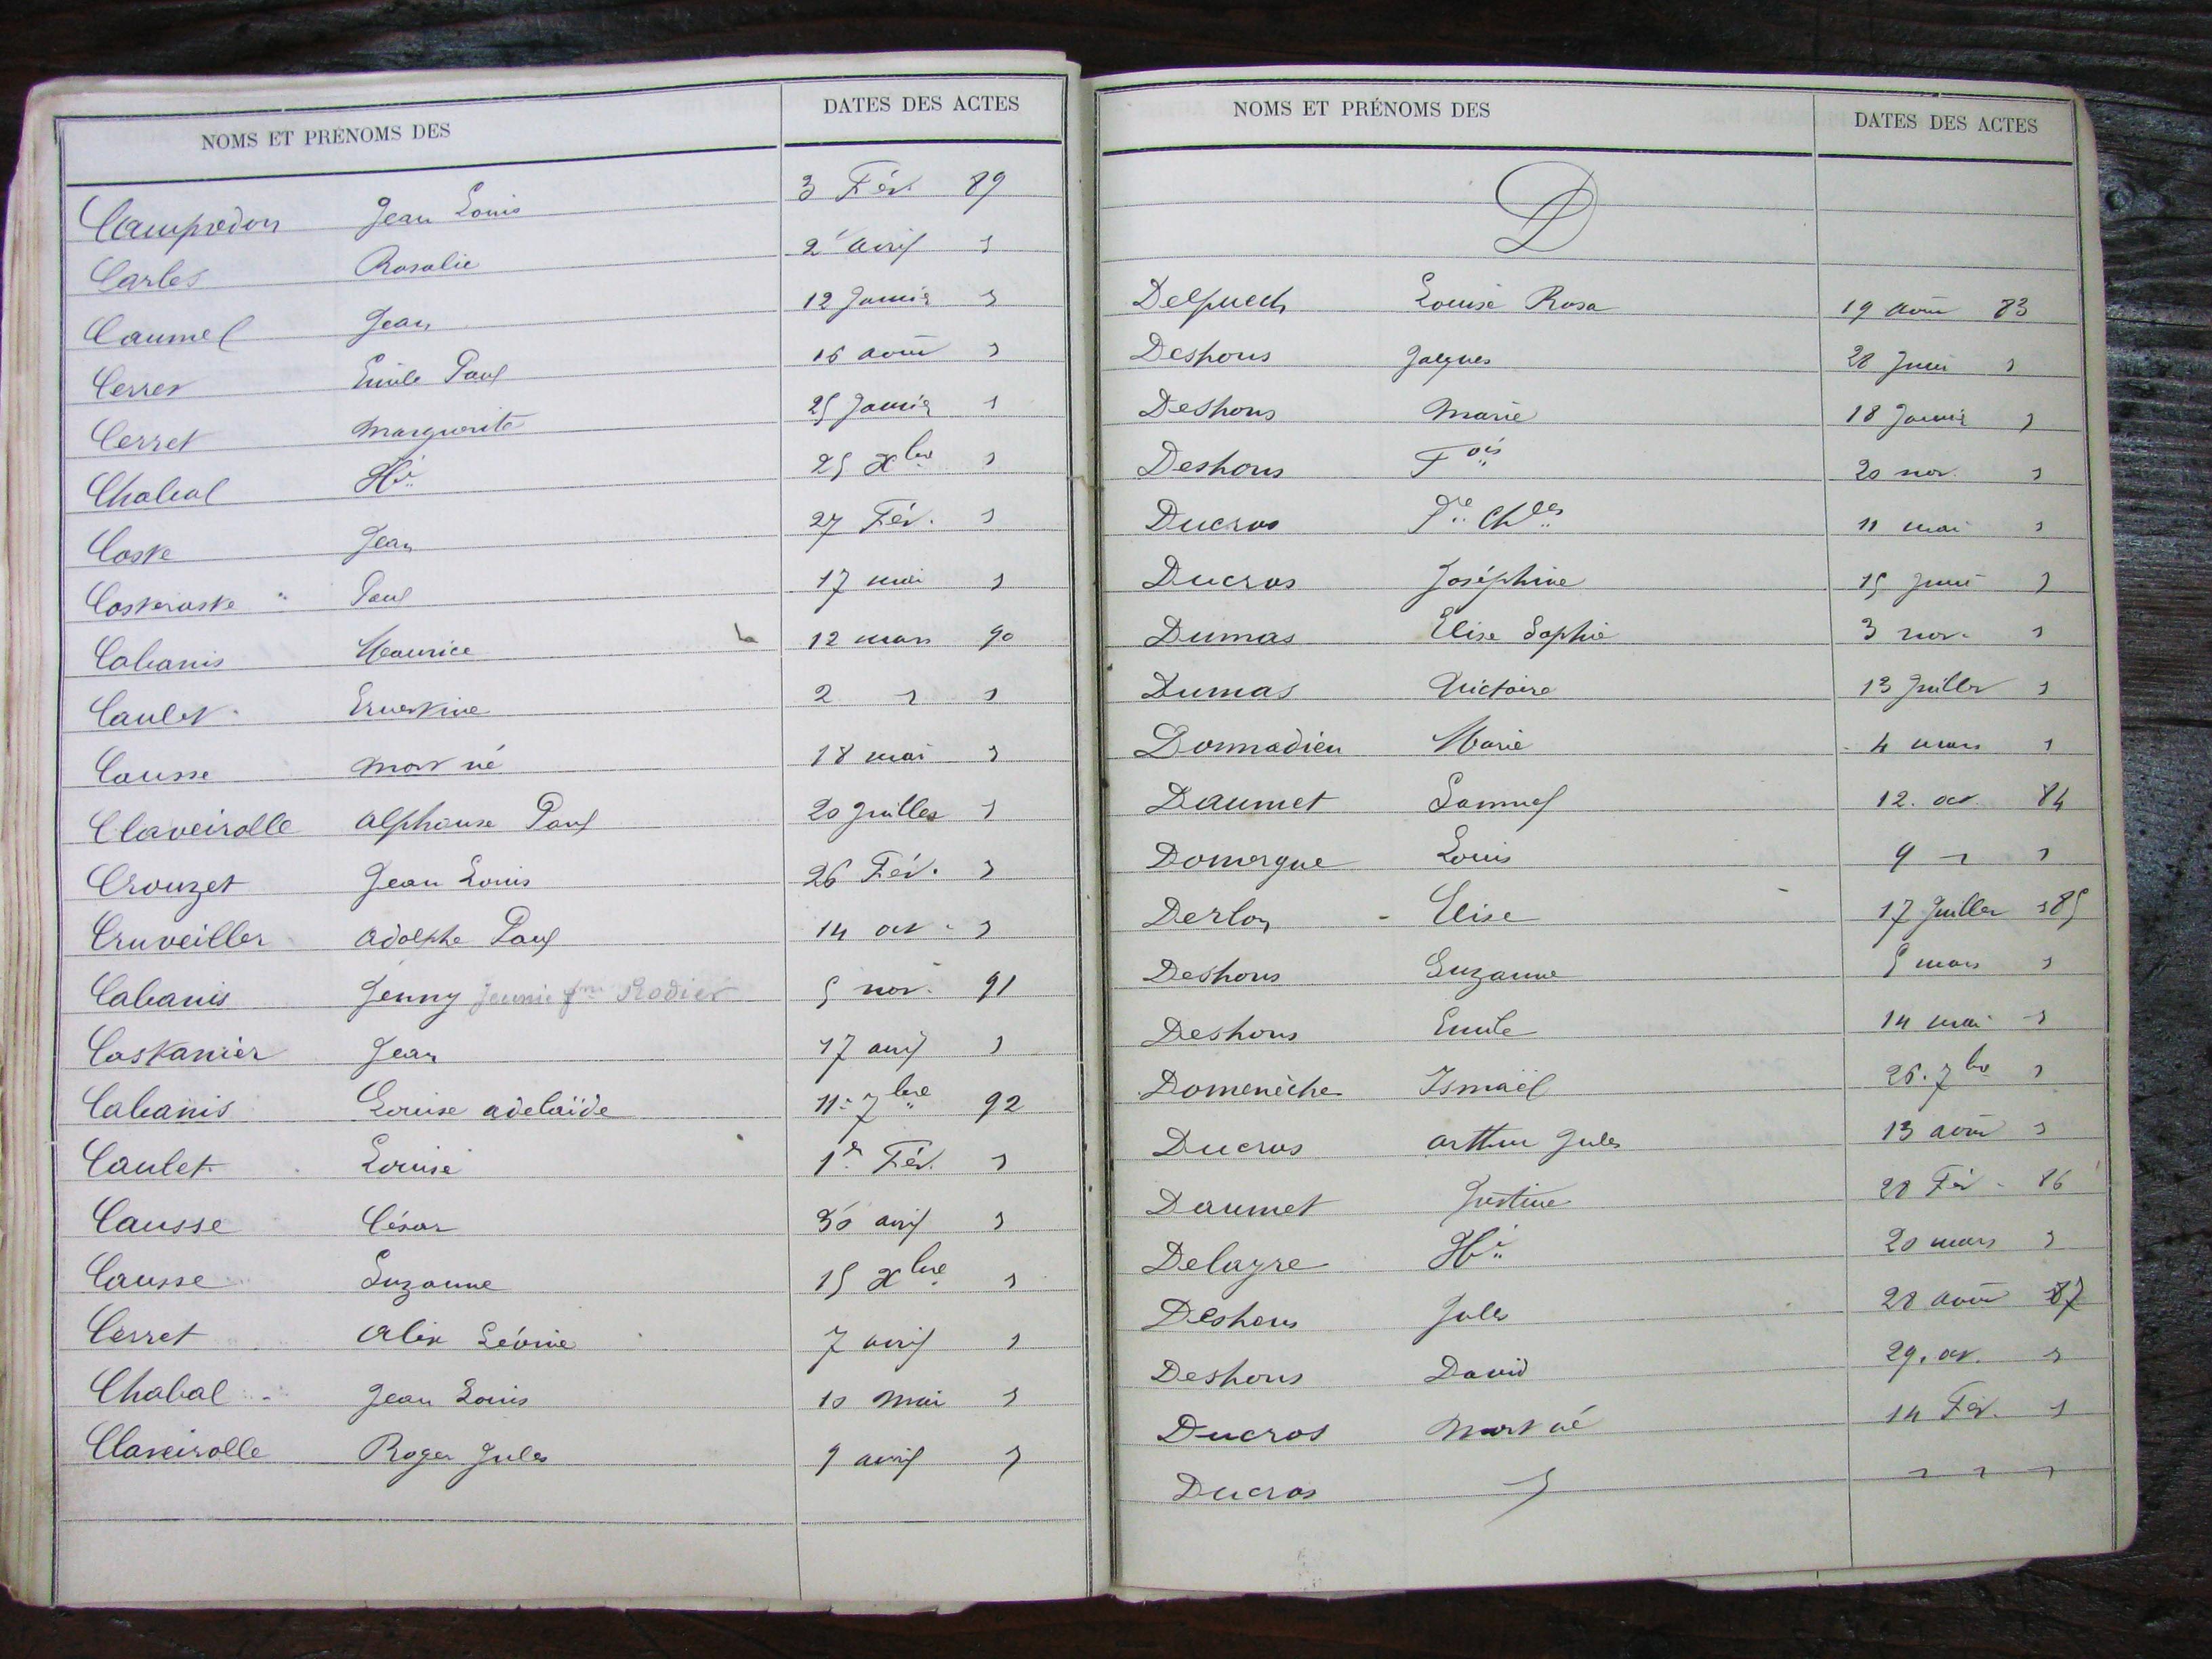 NOMS ET PRÉNOMS DES DATES DES ACTES
Campredon Jean Louis 3 Fév. 89
Carles Rosalie 2 avril "
Caumel Jean 12 Janvier "
Cerret Emile Paul 16 août "
Cerret Marguerite 25 Janvier "
Chabal Hri 25 Xbre "
Coste Jean 27 Fév. "
Paul 17 mai "
Cabanis Maurice 12 mars 90
Caulet Ernestine 2 " "
Causse Mort né 18 mai "
Claveirolle Alphonse Paul 20 Juillet "
Crouzet Jean Louis 26 Fév. "
Cruveiller Adolphe Paul 14 oct. "
Cabanis Jenny Jeunie fme Rodier 5 nov. 91
Castanier Jean 17 avril "
Cabanis Louise Adelaïde 11 7bre 92
Caulet Louise 1er Fév. "
Causse César 30 avril "
Causse Suzanne 15 Xbre "
Cerret Alix Léonie 7 avril "
Chabal Jean Louis 10 Mai "
Claveirolle Roger Jules 9 avril "
NOMS ET PRÉNOMS DES DATES DES ACTES
D
Delpuech Louise Rosa 19 août 83
Deshons Jacques 28 Juin "
Deshons Marie 18 Janvier "
Deshons Fois 20 nov. "
Ducros Pre Chles 11 mai "
Ducros Joséphine 15 Juin "
Dumas Elise Sophie 3 nov. "
Dumas Victoire 13 Juillet "
Donnadieu Marie 4 mars "
Daumet Samuel 12. oct. 84
Domergue Louis 9 " "
Derlon Elise 17 Juillet 85
Deshons Suzanne 5 mars "
Deshons Emile 14 mai "
Domenèche Ismaël 26. 7bre "
Ducros Arthur Jules 13 août "
Daumet Justine 28 Fév. 86
Delayre Hri 20 mars "
Deshons Jules 28 août 87
Deshons David 29. oct. "
Ducros Mort né 14 Fév. "
Ducros " " " "